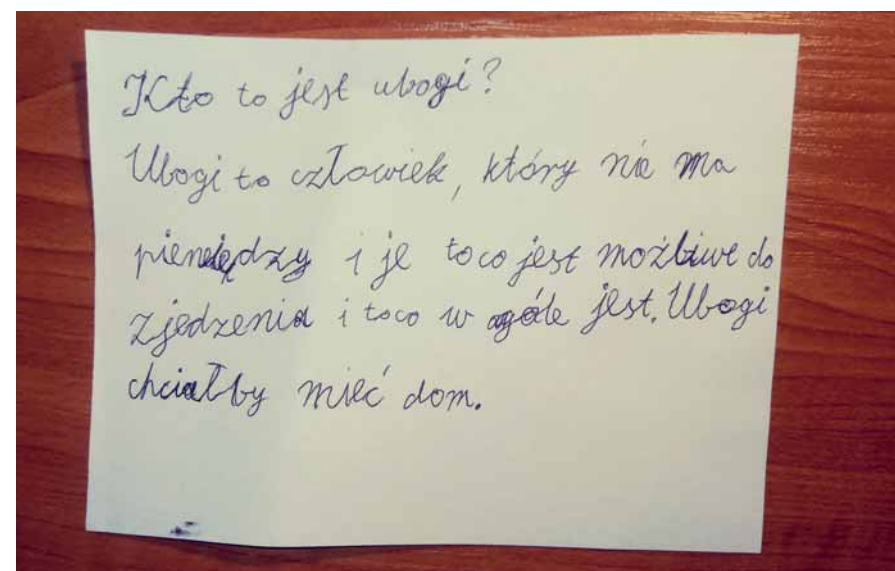 Kto to jest ubogi?
Ubogi to człowiek, który nie ma
pieniędzy i je toco jest możliwe do
zjedzenia i toco w ogóle jest. Ubogi
chciałby mieć dom.